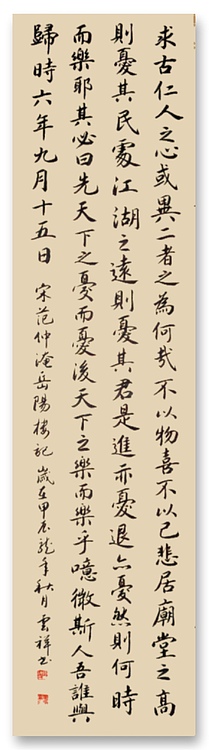 求古仁人之心或異二者之為何哉不以物喜不以己悲居廟堂之高
則憂其民處江湖之遠則憂其君是進亦憂退亦憂然則何時
而樂耶其必曰先天下之憂而憂後天下之樂而樂乎噫微斯人吾誰與
歸時六年九月十五日 宋范仲淹岳陽樓記 歲在甲辰龍年秋月雲祥书